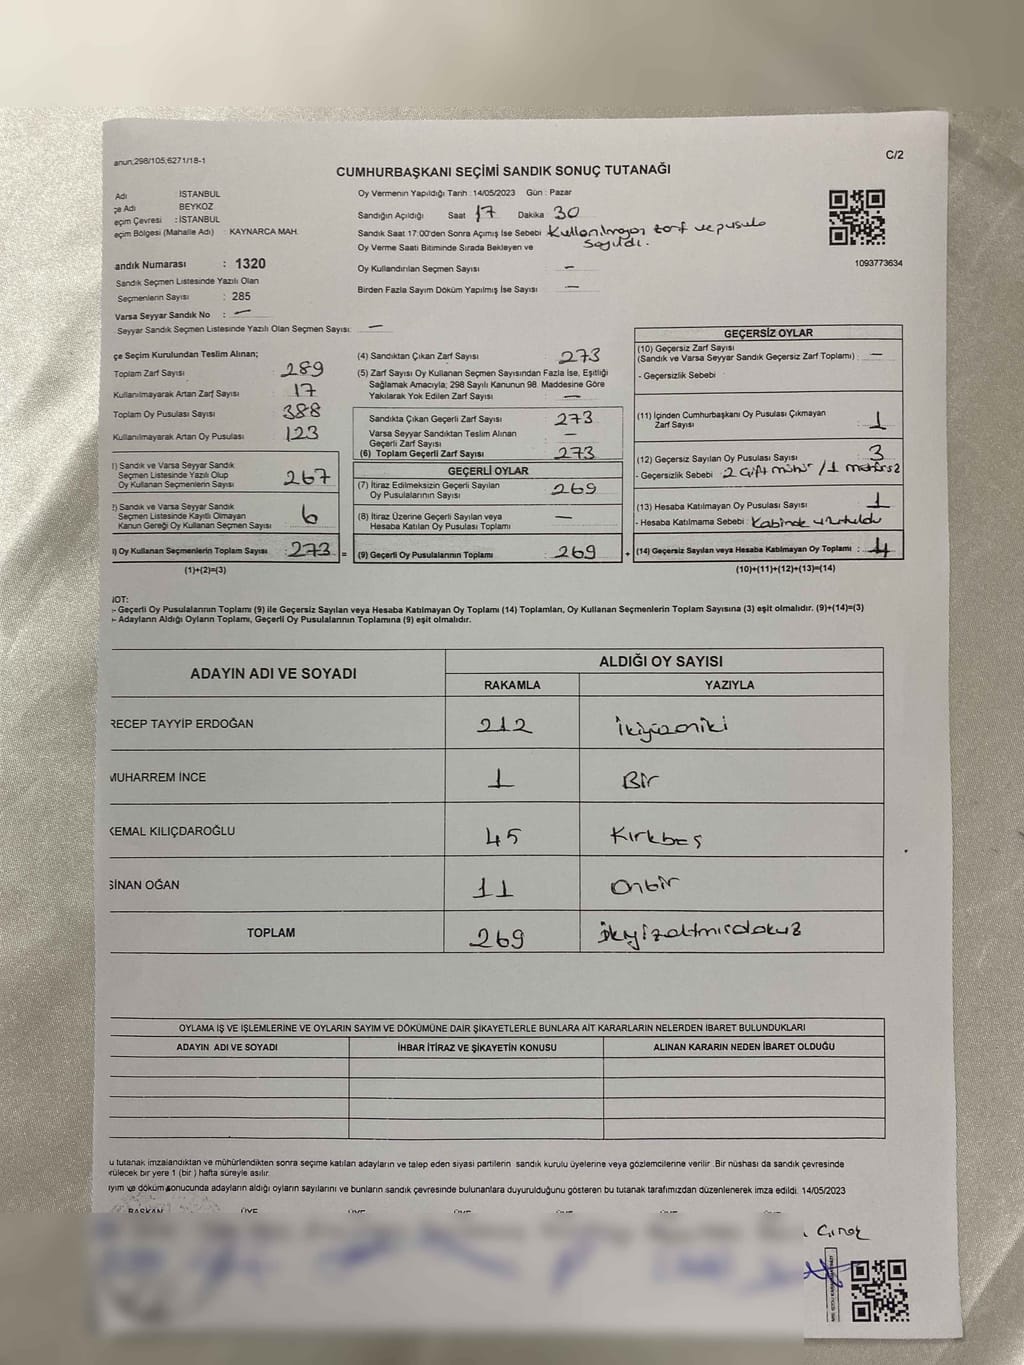 anun;298/105;6271/18-1
C/2
CUMHURBAŞKANI SEÇİMİ SANDIK SONUÇ TUTANAĞI
Adı : İSTANBUL
çe Adı BEYKOZ
eçim Çevresi : İSTANBUL
eçim Bölgesi (Mahalle Adı) : KAYNARCA MAH.
andık Numarası : 1320
Sandık Seçmen Listesinde Yazılı Olan
Seçmenlerin Sayısı : 285
Varsa Seyyar Sandık No : —
Seyyar Sandık Seçmen Listesinde Yazılı Olan Seçmen Sayısı: —
Oy Vermenin Yapıldığı Tarih : 14/05/2023 Gün : Pazar
Sandığın Açıldığı Saat 17 Dakika 30
Sandık Saat 17:00'den Sonra Açımış İse Sebebi Kullanılmayan zarf ve pusula
sayıldı.
Oy Verme Saati Bitiminde Sırada Bekleyen ve
Oy Kullandırılan Seçmen Sayısı —
Birden Fazla Sayım Döküm Yapılmış İse Sayısı —
1093773634
çe Seçim Kurulundan Teslim Alınan;
Toplam Zarf Sayısı : 289
Kullanılmayarak Artan Zarf Sayısı : 17
Toplam Oy Pusulası Sayısı : 388
Kullanılmayarak Artan Oy Pusulası : 123
1) Sandık ve Varsa Seyyar Sandık
Seçmen Listesinde Yazılı Olup
Oy Kullanan Seçmenlerin Sayısı : 267
2) Sandık ve Varsa Seyyar Sandık
Seçmen Listesinde Kayıtlı Olmayan
Kanun Gereği Oy Kullanan Seçmen Sayısı : 6
) Oy Kullanan Seçmenlerin Toplam Sayısı : 273 =
(1)+(2)=(3)
(4) Sandıktan Çıkan Zarf Sayısı 273
(5) Zarf Sayısı Oy Kullanan Seçmen Sayısından Fazla İse, Eşitliği
Sağlamak Amacıyla; 298 Sayılı Kanunun 98. Maddesine Göre
Yakılarak Yok Edilen Zarf Sayısı —
Sandıkta Çıkan Geçerli Zarf Sayısı 273
Varsa Seyyar Sandıktan Teslim Alınan
Geçerli Zarf Sayısı —
(6) Toplam Geçerli Zarf Sayısı 273
GEÇERLİ OYLAR
(7) İtiraz Edilmeksizin Geçerli Sayılan
Oy Pusulalarının Sayısı 269
(8) İtiraz Üzerine Geçerli Sayılan veya
Hesaba Katılan Oy Pusulası Toplamı —
(9) Geçerli Oy Pusulalarının Toplamı 269 +
GEÇERSİZ OYLAR
(10) Geçersiz Zarf Sayısı
(Sandık ve Varsa Seyyar Sandık Geçersiz Zarf Toplamı) : —
- Geçersizlik Sebebi :
(11) İçinden Cumhurbaşkanı Oy Pusulası Çıkmayan
Zarf Sayısı 1
(12) Geçersiz Sayılan Oy Pusulası Sayısı : 3
- Geçersizlik Sebebi : 2 Çift mühür / 1 mühürsz
(13) Hesaba Katılmayan Oy Pusulası Sayısı : 1
- Hesaba Katılmama Sebebi : Kabinde unutuldu
(14) Geçersiz Sayılan veya Hesaba Katılmayan Oy Toplamı : 4
(10)+(11)+(12)+(13)=(14)
NOT:
- Geçerli Oy Pusulalarının Toplamı (9) ile Geçersiz Sayılan veya Hesaba Katılmayan Oy Toplamı (14) Toplamları, Oy Kullanan Seçmenlerin Toplam Sayısına (3) eşit olmalıdır. (9)+(14)=(3)
- Adayların Aldığı Oyların Toplamı, Geçerli Oy Pusulalarının Toplamına (9) eşit olmalıdır.
ADAYIN ADI VE SOYADI
ALDIĞI OY SAYISI
RAKAMLA YAZIYLA
RECEP TAYYİP ERDOĞAN 212 İkiyüzoniki
MUHARREM İNCE 1 Bir
KEMAL KILIÇDAROĞLU 45 Kırkbeş
SİNAN OĞAN 11 Onbir
TOPLAM 269 İkiyizaltmışdokuz
OYLAMA İŞ VE İŞLEMLERİNE VE OYLARIN SAYIM VE DÖKÜMÜNE DAİR ŞİKAYETLERLE BUNLARA AİT KARARLARIN NELERDEN İBARET BULUNDUKLARI
ADAYIN ADI VE SOYADI İHBAR İTİRAZ VE ŞİKAYETİN KONUSU ALINAN KARARIN NEDEN İBARET OLDUĞU
u tutanak imzalandıktan ve mühürlendikten sonra seçime katılan adayların ve talep eden siyasi partilerin sandık kurulu üyelerine veya gözlemcilerine verilir. Bir nüshası da sandık çevresinde
rülecek bir yere 1 (bir ) hafta süreyle asılır.
ıyım ve döküm sonucunda adayların aldığı oyların sayılarını ve bunların sandık çevresinde bulunanlara duyurulduğunu gösteren bu tutanak tarafımızdan düzenlenerek imza edildi. 14/05/2023
BAŞKAN ÜYE ÜYE ÜYE ÜYE ÜYE ÜYE